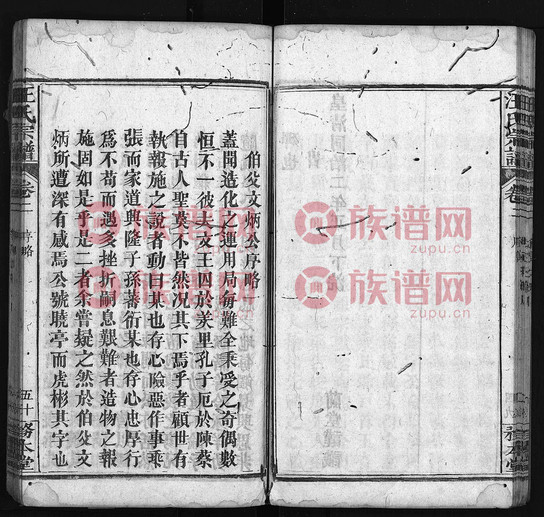 汪氏宗譜
卷二
務本堂
伯父文炳公序略
蓋聞造化之運用局每難全秉受之奇偶數
恒不一彼夫文王囚於羑里孔子厄於陳蔡
自古人聖莫不皆然况其下焉乎者顧世有
執報施之說者動曰某也存心險惡作事乖
張而家道興隆子孫蕃衍某也存心忠厚行
為不苟而遇多挫折嗣息艱難者造物之報
施固如是乎是二者余嘗疑之然於伯父文
炳所遭深有感焉公號曉亭而虎彬其字也
汪氏宗譜
卷二
序略
五十
務本堂
族谱网
zupu.cn
族谱网
zupu.cn
族谱网
zupu.cn
族谱网
zupu.cn